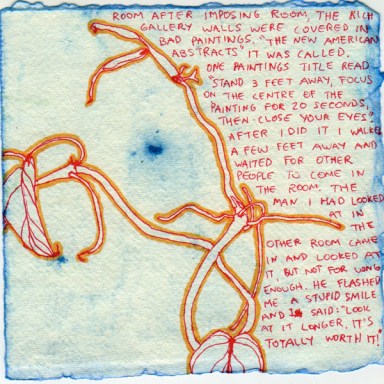 ROOM AFTER IMPOSING ROOM, THE RICH
GALLERY WALLS WERE COVERED IN
BAD PAINTINGS. "THE NEW AMERICAN
ABSTRACTS", IT WAS CALLED.
ONE PAINTINGS TITLE READ
"STAND 3 FEET AWAY, FOCUS
ON THE CENTRE OF THE
PAINTING FOR 20 SECONDS,
THEN CLOSE YOUR EYES".
AFTER I DID IT I WALKED
A FEW FEET AWAY AND
WAITED FOR OTHER
PEOPLE TO COME IN
THE ROOM. THE
MAN I HAD LOOKED
AT IN THE
OTHER ROOM CAME
IN AND LOOKED AT
IT, BUT NOT FOR LONG
ENOUGH. HE FLASHED
ME A STUPID SMILE
AND I SAID: "LOOK
AT IT LONGER, IT'S
TOTALLY WORTH IT!